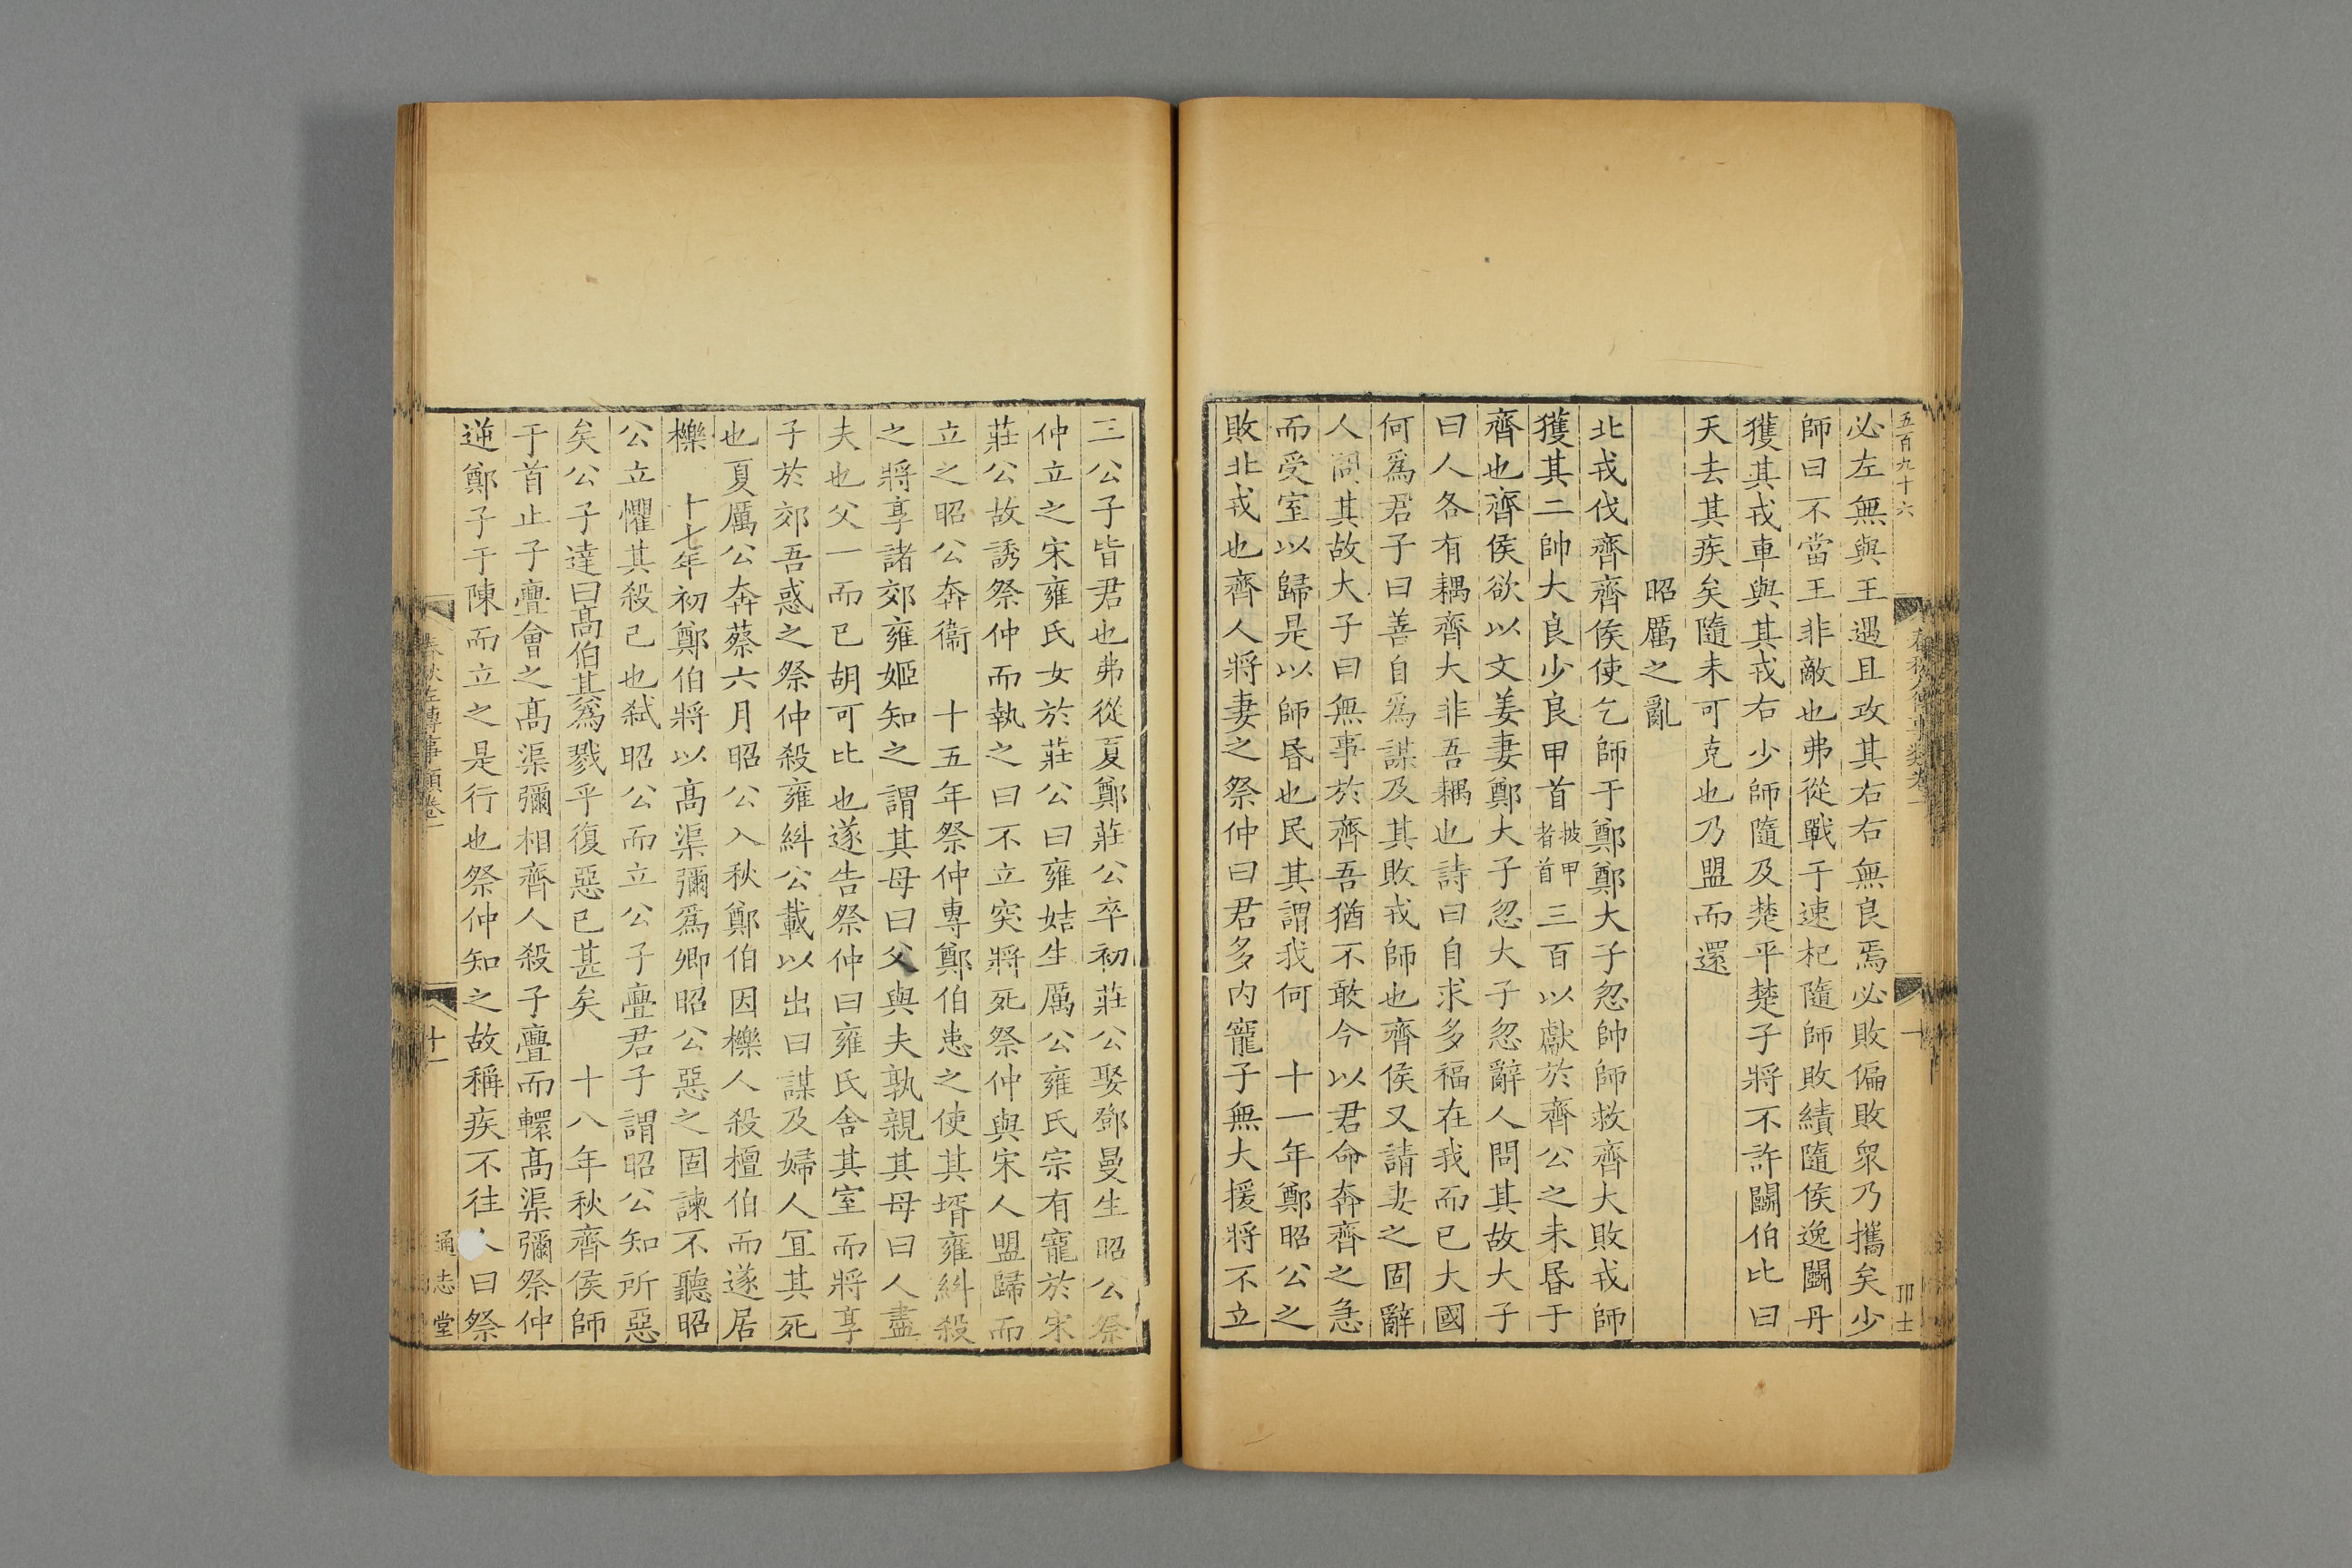 五百九十六
必左無與王遇且攻其右右無良焉必敗偏敗衆乃攜矣少
師曰不當王非敵也弗從戰于速杞隨師敗績隨侯逸鬬丹
獲其戎車與其戎右少師隨及楚平楚子將不許鬬伯比曰
天去其疾矣隨未可克也乃盟而還
昭厲之亂
北戎伐齊齊侯使乞師于鄭鄭大子忽帥師救齊大敗戎師
獲其二帥大良少良甲首被甲者首三百以獻於齊公之未昏于
齊也齊侯欲以文姜妻鄭大子忽大子忽辭人問其故大子
曰人各有耦齊大非吾耦也詩曰自求多福在我而已大國
何爲君子曰善自爲謀及其敗戎師也齊侯又請妻之固辭
人問其故大子曰無事於齊吾猶不敢今以君命奔齊之急
而受室以歸是以師昏也民其謂我何 十一年鄭昭公之
敗北戎也齊人將妻之祭仲曰君多內寵子無大援將不立
三公子皆君也弗從夏鄭莊公卒初莊公娶鄧曼生昭公祭
仲立之宋雍氏女於莊公曰雍姞生厲公雍氏宗有寵於宋
莊公故誘祭仲而執之曰不立突將死祭仲與宋人盟歸而
立之昭公奔衞 十五年祭仲專鄭伯患之使其壻雍糾殺
之將享諸郊雍姬知之謂其母曰父與夫孰親其母曰人盡
夫也父一而已胡可比也遂告祭仲曰雍氏舍其室而將享
子於郊吾惑之祭仲殺雍糾公載以出曰謀及婦人冝其死
也夏厲公奔蔡六月昭公入秋鄭伯因櫟人殺檀伯而遂居
櫟 十七年初鄭伯將以高渠彌爲卿昭公惡之固諫不聽昭
公立懼其殺己也弑昭公而立公子亹君子謂昭公知所惡
矣公子達曰高伯其爲戮乎復惡已甚矣 十八年秋齊侯師
于首止子亹會之高渠彌相齊人殺子亹而轘高渠彌祭仲
逆鄭子于陳而立之是行也祭仲知之故稱疾不往人曰祭
春秋左傳事類卷一
十一
通志堂